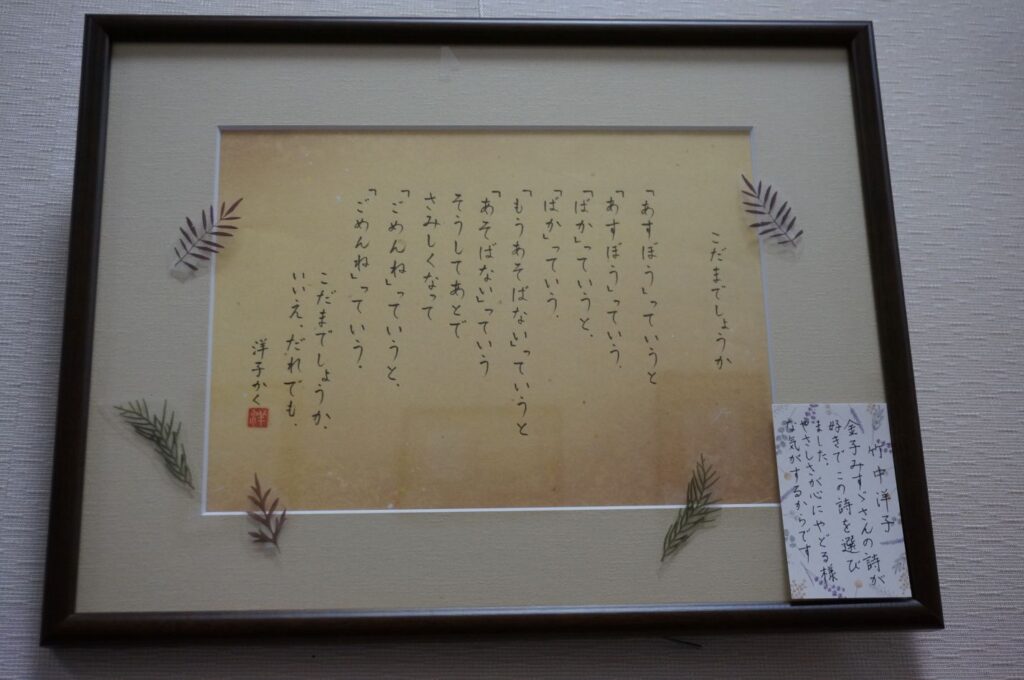 こだまでしょうか
「あすぼう」っていうと
「あすぼう」っていう。
「ばか」っていうと、
「ばか」っていう。
「もうあそばない」っていうと
「あそばない」っていう
そうしてあとで
さみしくなって
「ごめんね」っていうと、
「ごめんね」っていう。
こだまでしょうか、
いいえ、だれでも。
洋子かく
洋
竹中洋子
金子みすゞさんの詩が
好きでこの詩を選び
ました。
やさしさが心にやどる様
な気がするからです